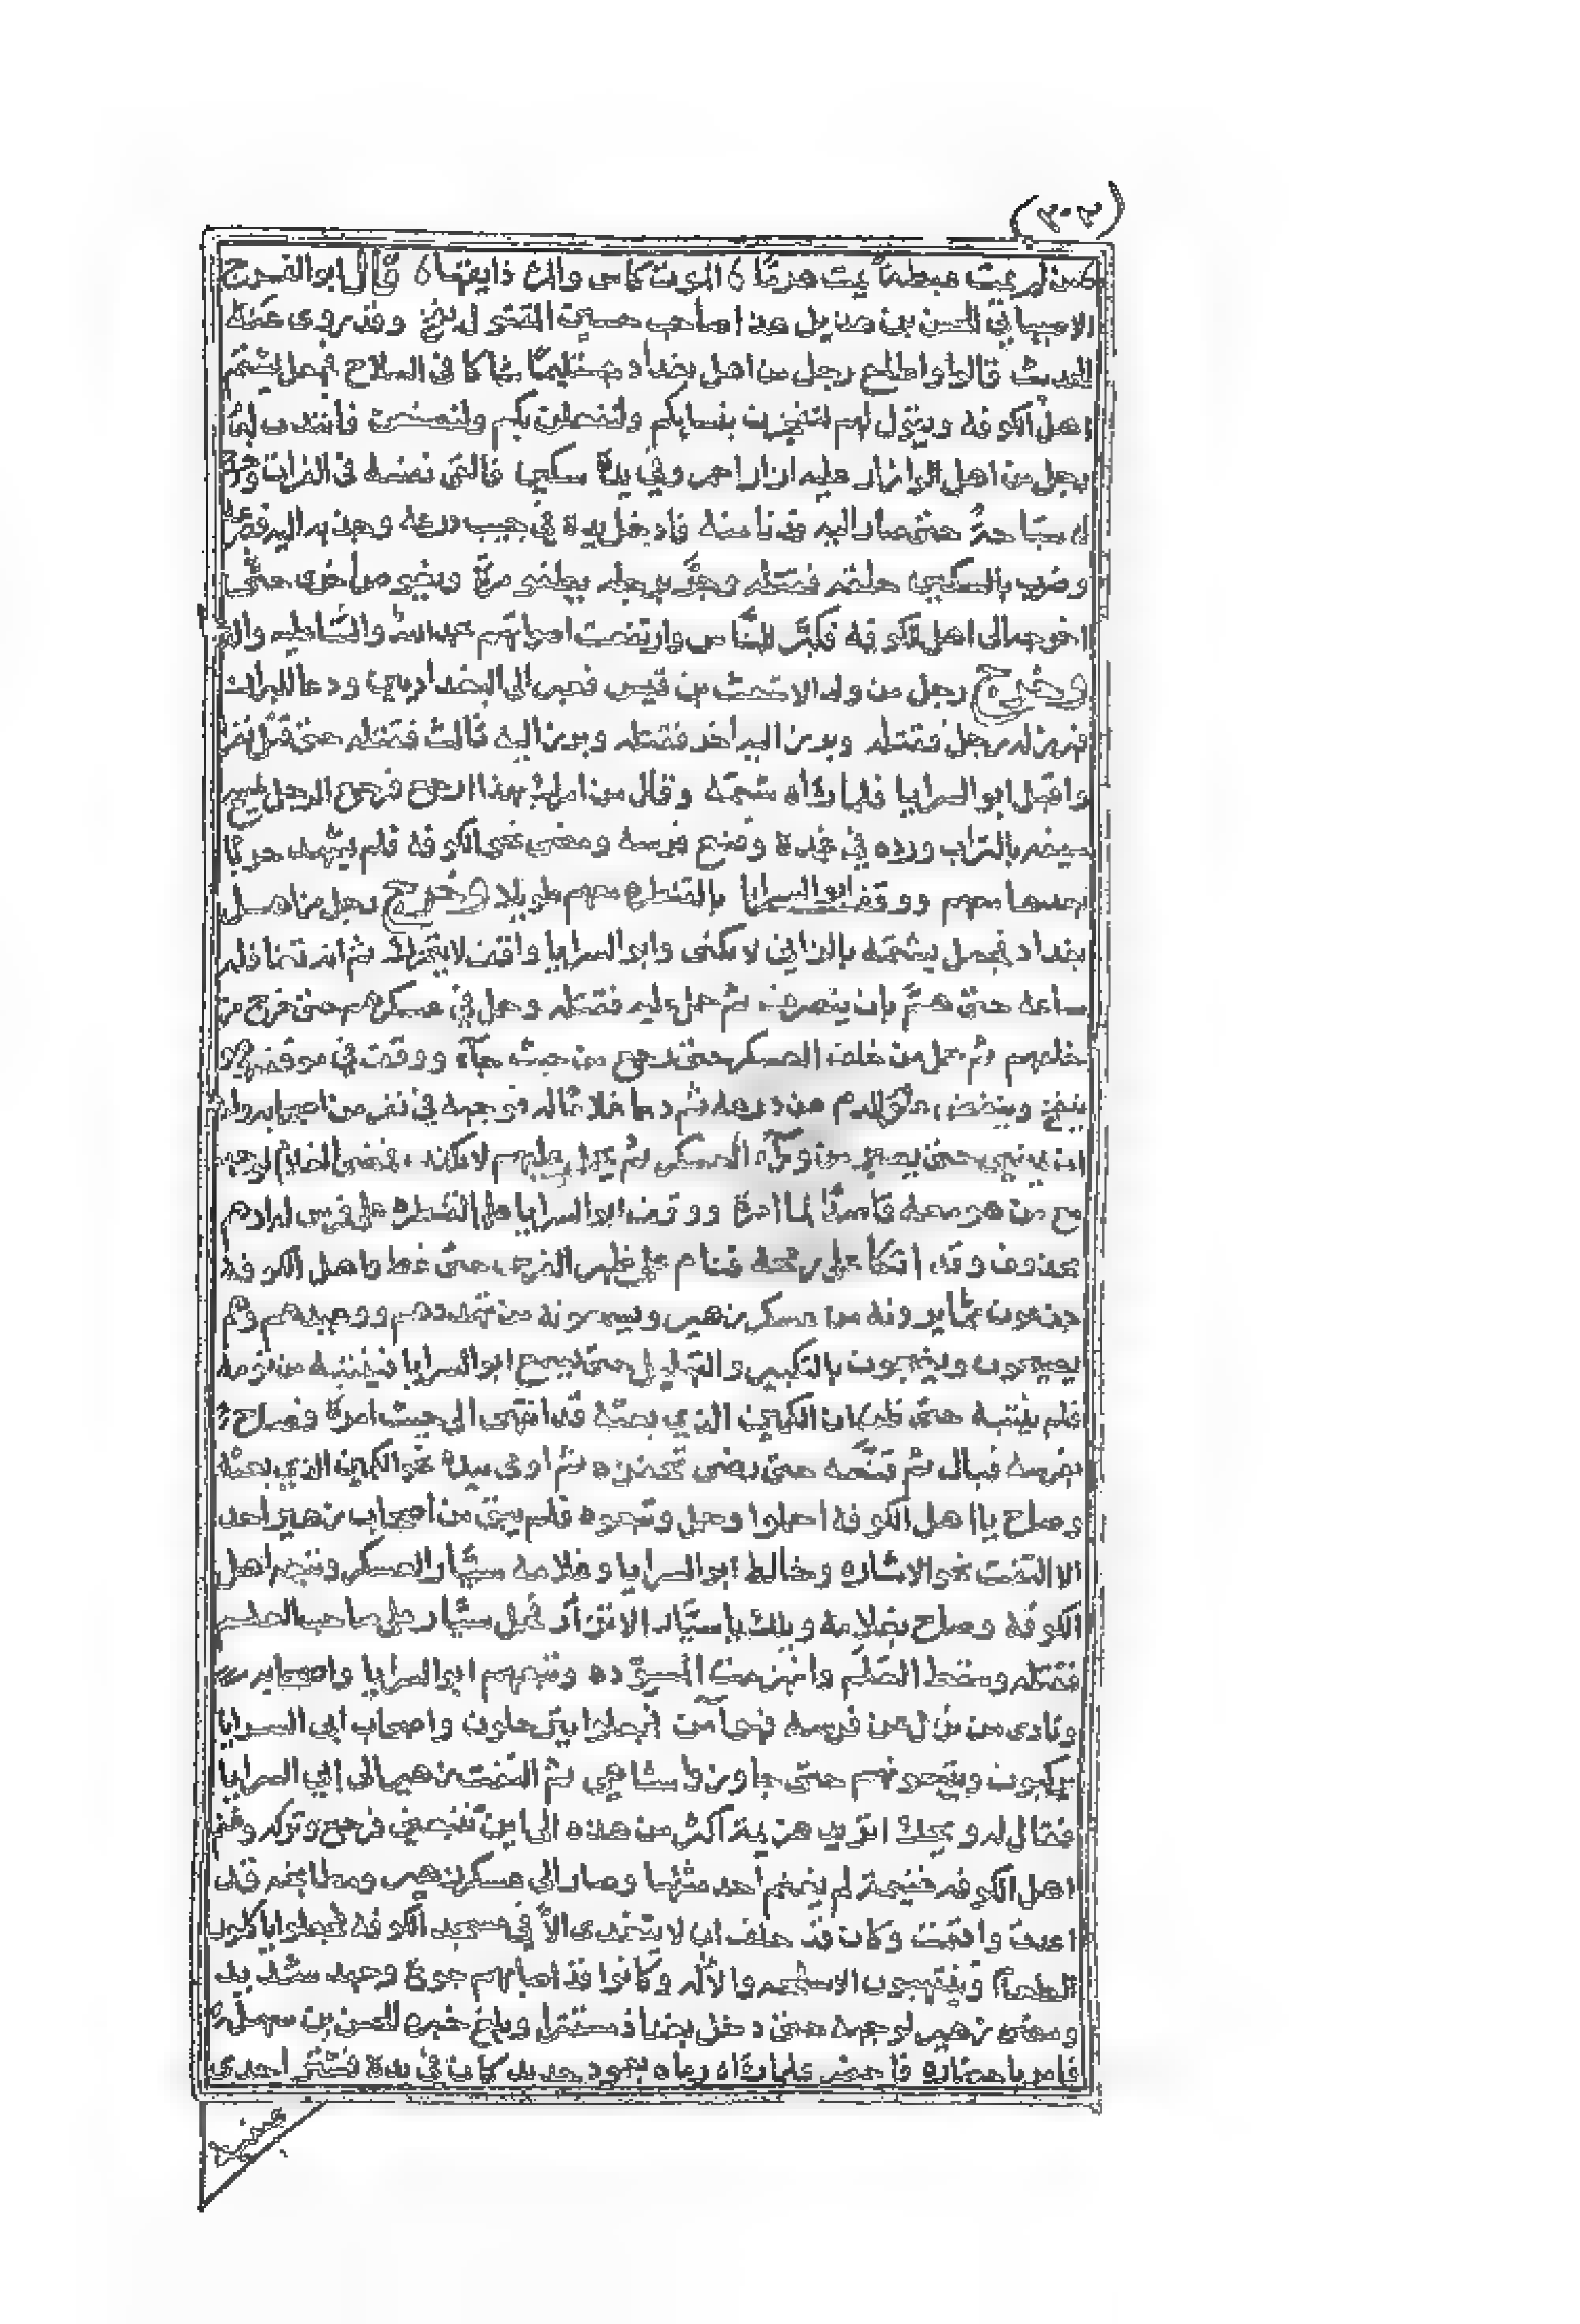 من لم يمت عبطة يمت هرما الموت كاس والمرء ذايقها قال ابو الفرج
الاصبهاني الحسن بن هذيل هذا صاحب حسين المقتول بفخ وقد روى عنه
الحديث قالوا واطلع رجل من اهل بغداد مستلئما شاكا في السلاح فجعل يشتم
اهل الكوفة ويقول لهم لنفجرن بنسايكم ولنفعلن بكم ولنصنعن فانتدب اليه
رجل من اهل الوازار عليه ازار احمر وفي يده سكين فالقى نفسه في الفرات
سباحة حتى صار اليه فدنا منه فادخل يده في جيب درعه وجذبه اليه فصرعه
وضرب بالسكين حلقه فقتله وجر برجله يطفو مرة ويغوص اخرى حتى
اخرجه الى اهل الكوفة فكبر الناس وارتفعت اصواتهم بحمد الله والثناء عليه
وخرج رجل من ولد الاشعث بن قيس فعبر الى البغداديين ودعا للبراز
فبرز له رجل فقتله وبرز اليه اخر فقتله وبرز اليه ثالث فقتله حتى قتل نفرا
واقبل ابو السرايا فلما راه شتمه وقال من امرك بهذا ارجع فرجع الرجل فمسح
سيفه بالتراب ورده في غمده وقنع فرسه ومضى نحو الكوفة فلم يشهد حربا
بعدها معهم ووقف ابو السرايا بالقنطرة معهم طويلا وخرج رجل من اهل
بغداد فجعل يشتمه بالزاني لا يكنى وابو السرايا واقف لا يتحرك ثم انه تغافله
ساعة حتى هم بان ينصرف ثم حمل عليه فقتله وحمل في عسكرهم حتى خرج من
خلفهم ثم حمل من خلف العسكر حتى رجع من حيث جآء ووقف في موقفه وهو
ينفخ وينفض علق الدم عن درعه ثم دعا غلاما له فوجهه في نفر من اصحابه وامره
ان يمضي حتى يصير من ورآء العسكر ثم يحمل عليهم لا يكذب فمضى الغلام لوجهه
مع من هو معه قاصدا لما امره ووقف ابو السرايا على القنطرة على فرس له ادهم
محذوف وقد اتكا على رمحه فنام على ظهر الفرس حتى غط واهل الكوفة
جزعون لما يرونه من عسكر زهير ويسمعونه من تهددهم ووعيدهم وهم
يصيحون ويضجون بالتكبير والتهليل حتى يسمع ابو السرايا فينتبه من نومه
فلم ينتبه حتى ظن ان الكمين الذي بعثه قد انتهى الى حيث امره وصاح
بفرسه فبال ثم قنعه حتى رضي تحفزه ثم اومى بيده نحو الكمين الذي بعثه
وصاح يا اهل الكوفة احملوا وحمل وتبعوه فلم يبق من اصحاب زهير احد
الا التفت نحو الاشاره وخالط ابو السرايا وغلامه سيار العسكر وتبعه اهل
الكوفة وصاح بغلامه ويلك يا سيار الا تراه فحمل سيار على صاحب العلم
فقتله وسقط العلم وانهزمت المسوده وتبعهم ابو السرايا واصحابه
ونادى من نزل عن فرسه فهو آمن فجعلوا يترجلون واصحاب ابي السرايا
يركبون ويتبعونهم حتى جاوزوا شاهي ثم التفت زهير الى ابي السرايا
فقال له ويحك اتريد هزيمة اكثر من هذه الى اين تتبعني فرجع وتركه وغنم
اهل الكوفه غنيمة لم يغنم احد مثلها وصار الى عسكر زهير ومطابخه قد
اعدت واقيمت وكان قد حلف ان لا يتغدى الا في مسجد الكوفة فجعلوا ياكلون
الطعام وينتهبون الاسلحه والآله وكانوا قد اصابهم جوع وجهد شديد
ومضى زهير لوجهه حتى دخل بغداد مستترا وبلغ خبره الحسن بن سهل
فامر باحضاره فاحضر فلما راه رماه بعمود حديد كان في يده فشتر احدى
عينيه